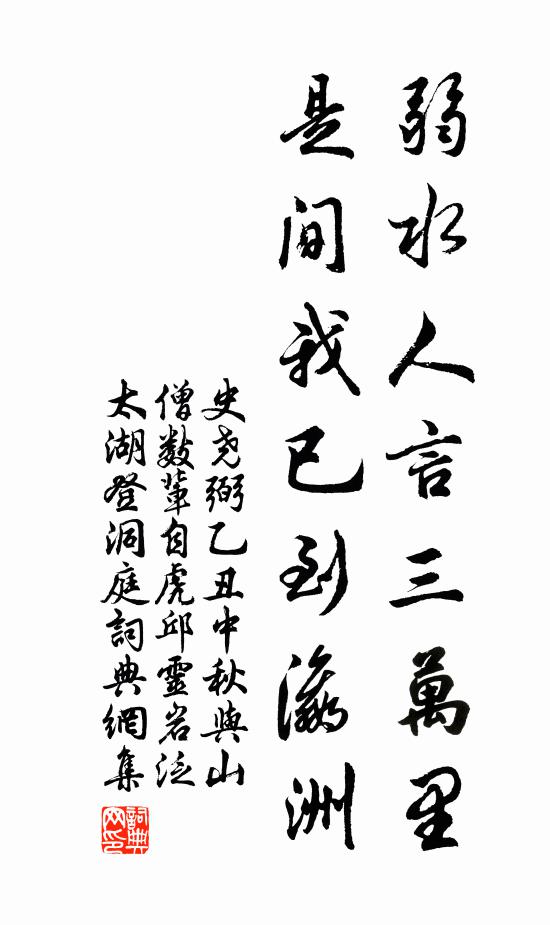 弱水人言三萬里
是間我已到瀛洲
史堯弼乙丑中秋與山
僧數輩自虎邱靈岩泛
太湖登洞庭詞典網集
詞典
网印